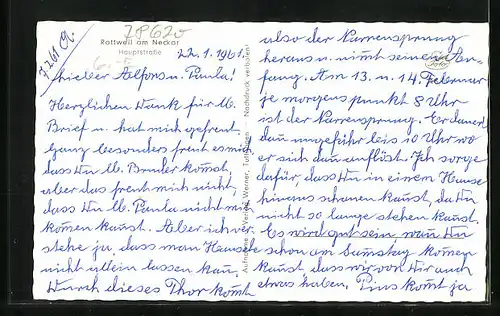 7261 A.
78620
Rottweil am Neckar
Hauptstraße
22.1.1961.
Lieber Alfons u. Paula!
Herzlichen Dank für lb.
Brief u. hat mich gefreut.
Ganz besonders freut es mich
daß Du lb. Bruder komst,
aber das freut mich nicht,
dass Du lb. Paula nicht mit
kömen kanst. Aber ich ver
stehe ja, dass man Hausele
nicht allein lassen kan.
Durch dieses Thor komt
also der Narrensprung
heraus u. nimt seinen An-
fang. Am 13. u. 14. Februar
je morgens punkt 8 Uhr
ist der Narrensprung. Er dauert
dan ungefähr bis 10 Uhr wo
er sich dan auflöst. Ich sorge
dafür, dass Du in einem Hause
hinaus schauen kanst, da Du
nicht so lange stehen kanst.
Es wird gut sein wan Du
schon am Samstag kömen
kanst, dass wir von Dir auch
etwas haben. Pius komt ja
Aufnahme u. Verlag Werner, Tuttlingen - Nachdruck verboten!